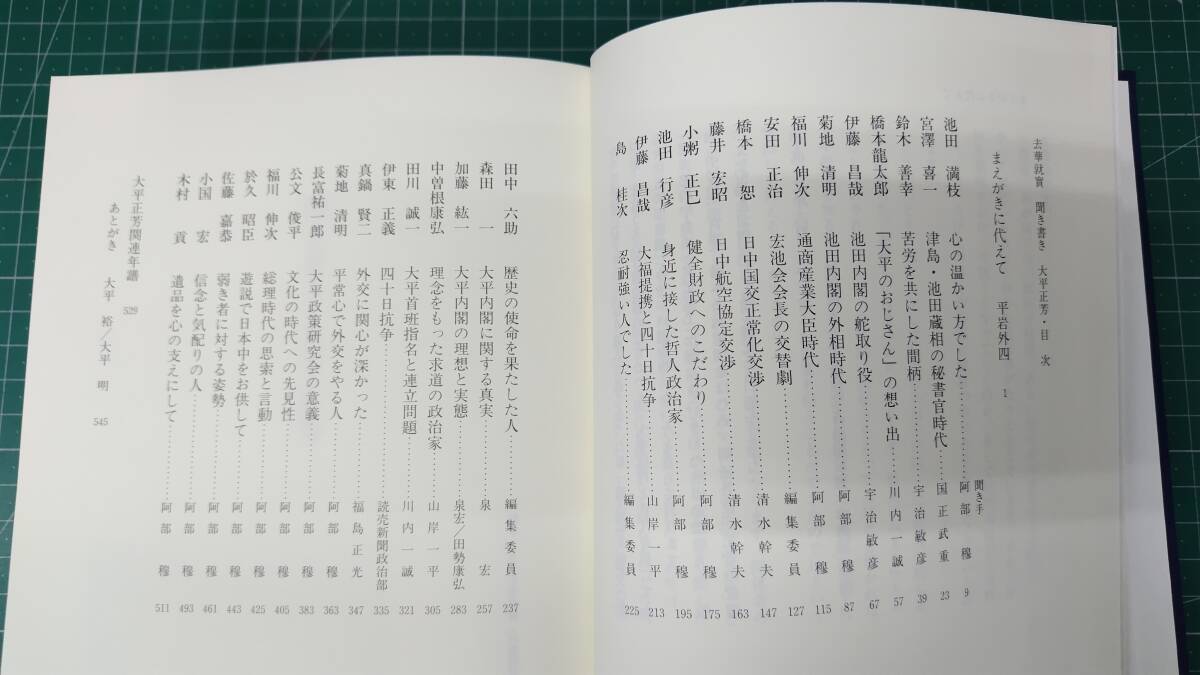 去華就實 聞き書き 大平正芳・目次
まえがきに代えて 平岩外四 1
聞き手
池田満枝 心の温かい方でした………… 阿部穆 9
宮澤喜一 津島・池田蔵相の秘書官時代 国正武重 23
鈴木善幸 苦労を共にした間柄………… 宇治敏彦 39
橋本龍太郎 「大平のおじさん」の想い出………… 川内一誠 57
伊藤昌哉 池田内閣の舵取り役………… 宇治敏彦 67
菊地清明 池田内閣の外相時代………… 阿部穆 87
福川伸次 通商産業大臣時代………… 阿部穆 115
安田正治 宏池会会長の交替劇………… 編集委員 127
橋本恕 日中国交正常化交渉………… 清水幹夫 147
藤井宏昭 日中航空協定交渉………… 清水幹夫 163
小粥正巳 健全財政へのこだわり………… 阿部穆 175
池田行彦 身近に接した哲人政治家………… 阿部穆 195
伊藤昌哉 大福提携と四十日抗争………… 山岸一平 213
島桂次 忍耐強い人でした………… 編集委員 225
田中六助 歴史の使命を果たした人………… 編集委員 237
森田一 大平内閣に関する真実………… 泉宏 257
加藤紘一 大平内閣の理想と実態………… 泉宏/田勢康弘 283
中曽根康弘 理念をもった求道の政治家………… 山岸一平 305
田川誠一 大平首班指名と連立問題………… 川内一誠 321
伊東正義 四十日抗争………… 読売新聞政治部 335
真鍋賢二 外交に関心が深かった………… 福島正光 347
菊地清明 平常心で外交をやる人………… 阿部穆 363
長富祐一郎 大平政策研究会の意義………… 阿部穆 383
公文俊平 文化の時代への先見性………… 阿部穆 405
福川伸次 総理時代の思索と言動………… 阿部穆 425
於久昭臣 遊説で日本中をお供して………… 阿部穆 443
佐藤嘉恭 弱き者に対する姿勢………… 阿部穆 461
小国宏 信念と気配りの人………… 阿部穆 493
木村貢 遺品を心の支えにして………… 阿部穆 511
大平正芳関連年譜 529
あとがき 大平裕/大平明 545